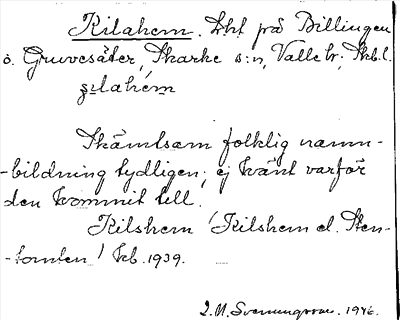 Kilahem. Lht på Billingen
ö. Gruvesäter, Skarke s:n, Valle hr, Skb.l.
ʂɩlahém
Skämtsam folklig namn-
-bildning tydligen; ej känt varför
den kommit till.
Kilshem (Kilshem el. Sten-
-tomten) kb. 1939.
L.M. Svenungsson. 1946.